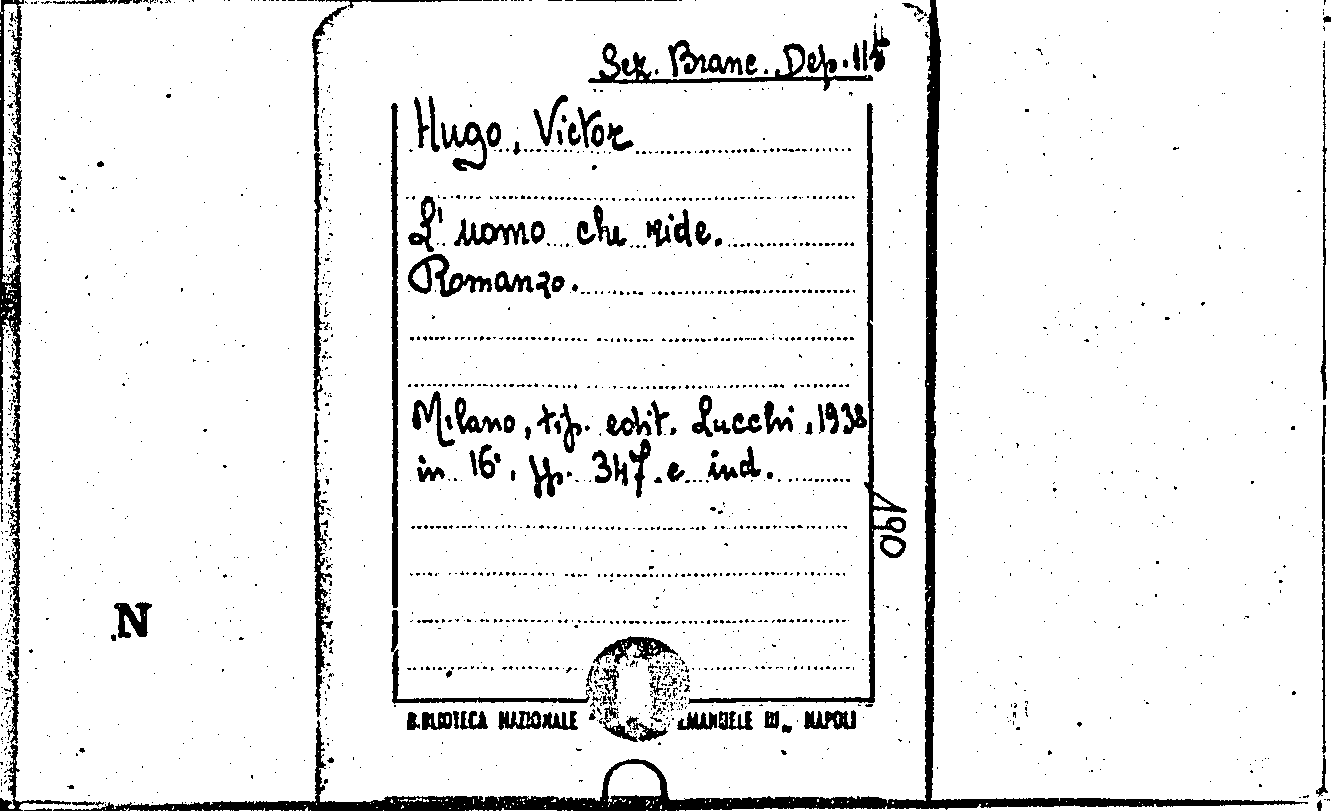 Sez. Branc. Dep. 115
Hugo, Victor
L'uomo che ride.
Romanzo.
Milano, tip. edit. Lucchi, 1938
in 16°, pp. 347 e ind.
190
N
BIBLIOTECA NAZIONALE EMANUELE III NAPOLI